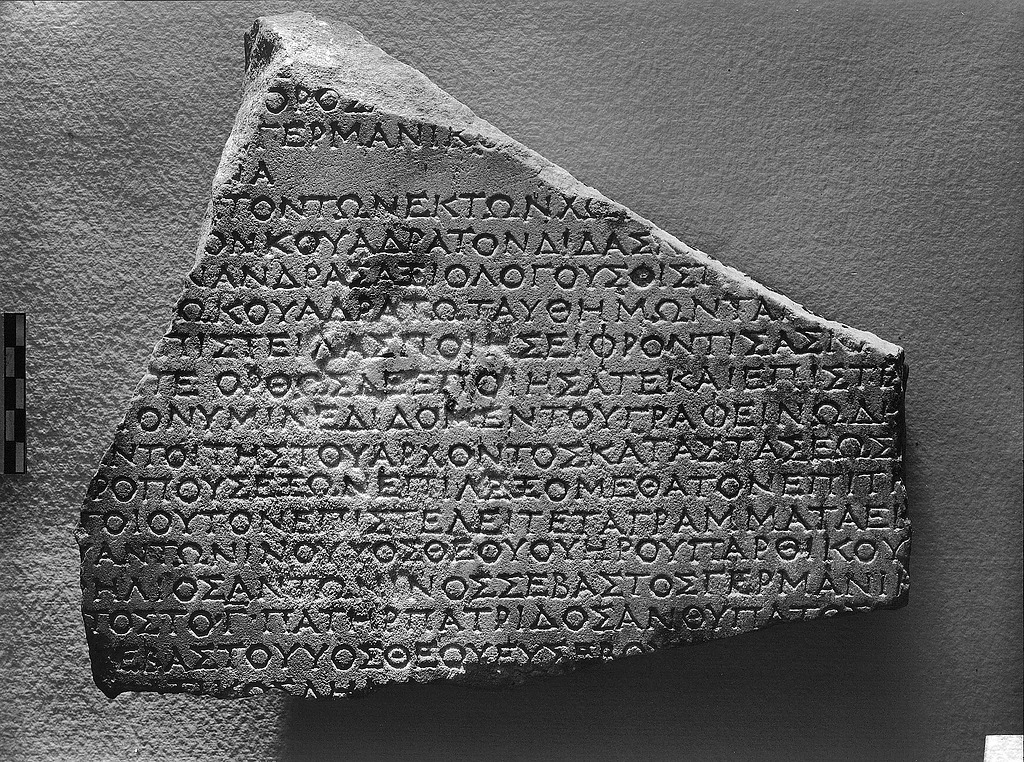 ΟΡΟΣ
ΓΕΡΜΑΝΙΚΟ
ΙΑ
ΤΟΝΤΩΝΕΚΤΩΝΧΟ
ΟΝΚΟΥΑΔΡΑΤΟΝΔΙΔΑΣ
ΑΝΔΡΑΣΑΞΙΟΛΟΓΟΥΣΟΙΣΤ
ΩΚΟΥΑΔΡΑΤΩΤΑΥΘΗΜΩΝΤΑ
ΤΙΣΤΕΙΛΑΣΙΤΟΙΣΕΙΦΡΟΝΤΙΣΑΣΙ
ΤΕΟΡΘΩΣΔΕΕΠΟΙΗΣΑΤΕΚΑΙΕΠΙΣΤΕ
ΟΝΥΜΙΝΕΔΙΔΟΜΕΝΤΟΥΓΡΑΦΕΙΝΩΔΙ
ΝΤΟΙΤΗΣΤΟΥΑΡΧΟΝΤΟΣΚΑΤΑΣΤΑΣΕΩΣ
ΡΟΠΟΥΣΕΞΩΝΕΠΙΛΕΞΟΜΕΘΑΤΟΝΕΠΙΤ
ΤΟΙΟΥΤΟΝΕΠΙΣΤΕΛΕΙΤΕΤΑΓΡΑΜΜΑΤΑΕΙ
ΑΝΤΩΝΙΝΟΥΥΟΣΘΕΟΥΟΥΗΡΟΥΠΑΡΘΙΚΟΥ
ΗΛΙΟΣΑΝΤΩΝΙΝΟΣΣΕΒΑΣΤΟΣΓΕΡΜΑΝΙ
ΤΟΣΤΟΓΠΑΤΗΡΠΑΤΡΙΔΟΣΑΝΘΥΠΑΤΟΣ
ΣΕΒΑΣΤΟΥΥΟΣΘΕΟΥΕΥΣΕΒΟΥ